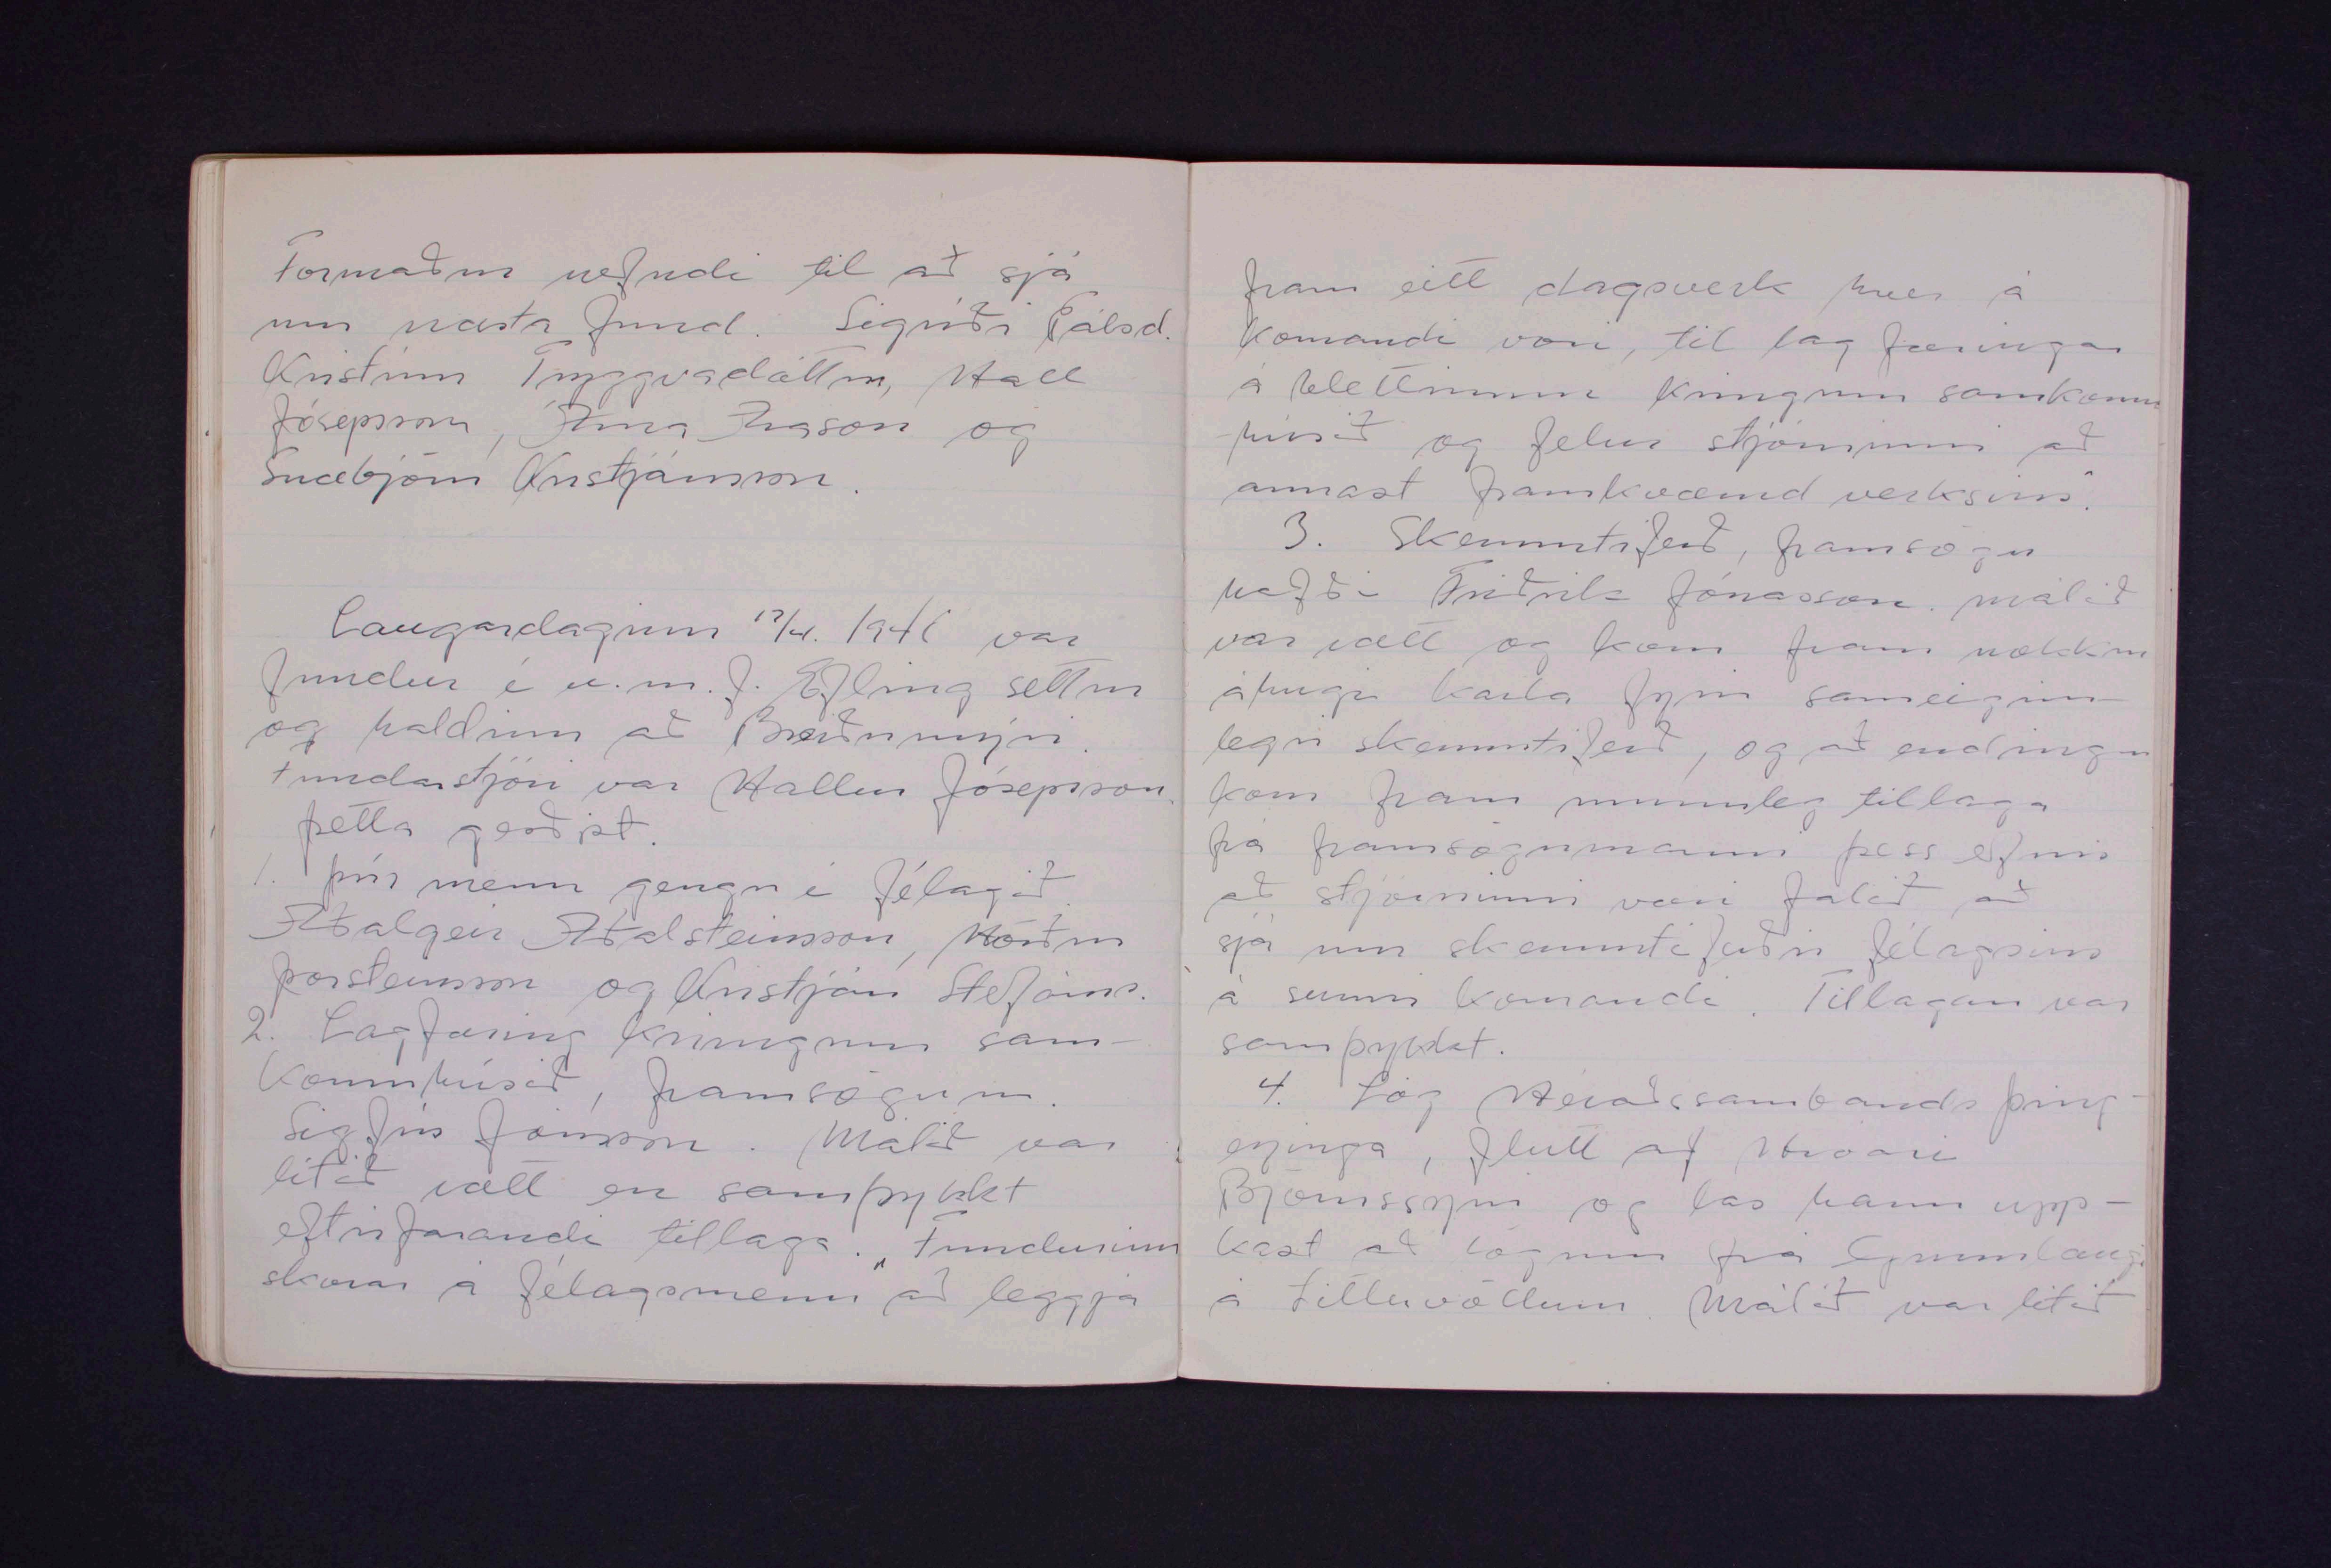 Formaður nefndi til að sjá
um næsta fund. Sigríði Pálsd.
Kristínu Tryggvadóttur, Hall
Jósepsson, Arna Arason og
Snæbjörn Kristjánsson.
Laugardaginn 17/4. 1946 var
fundur í u.m.f. Efling settur
og haldinn að Breiðumýri.
Fundarstjóri var Hallur Jósepsson.
Þetta gerðist.
1. Þrír menn gengu í félagið
Aðalgeir Aðalsteinsson, Hörður
Þorsteinsson og Kristján Stefáns.
2. Lagfæring kringum sam-
komuhúsið, framsögum.
Sigfús Jónsson. Málið var
lítið rætt en samþykkt
eftirfarandi tillaga. „Fundurinn
skorar á félagsmenn að leggja
fram eitt dagsverk hver á
komandi vori, til lagfæringar
á blettinum kringum samkomu
húsið og felur stjórninni að
annast framkvæmd verksins".
3. Skemmtiferð, framsögu
hafði Friðrik Jónasson. Málið
var rætt og kom fram nokkur
áhugi karla fyrir sameigin-
legri skemmtiferð, og að endingu
kom fram munnleg tillaga
frá framsögumanni þess efnis
að stjórninni væri falið að
sjá um skemmtiferðir félagsins
á sumri komandi. Tillagan var
samþykkt.
4. Lög Héraðssambands þing-
eyinga, flutt af Hróari
Björnssyni og las hann upp-
kast að lögum frá Gunnlaugi
á Litluvöllum. Málið var lítið